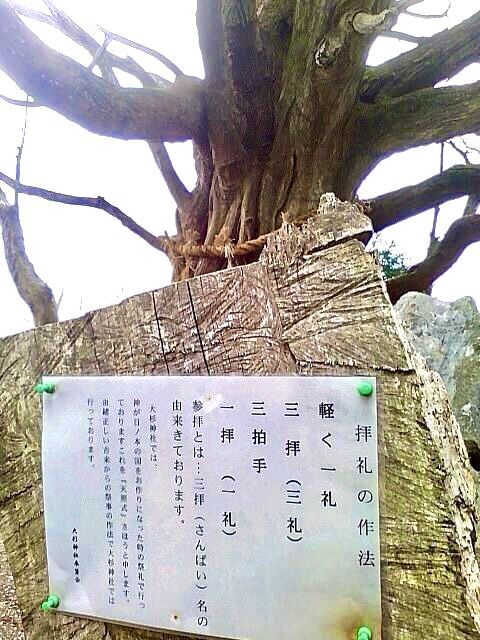 拝礼の作法
軽く一礼
三拝（三礼）
三拍手
一拝（一礼）
参拝とは…三拝（さんぱい）名の
由来きております。
大杉神社では、
神が日ノ本の国をお作りになった時の祭礼で行っ
ておりますこれを『天照式』さほうと申します。
由緒正しい古来からの祭事の作法で大杉神社では
行っております。
大杉神社奉賛会